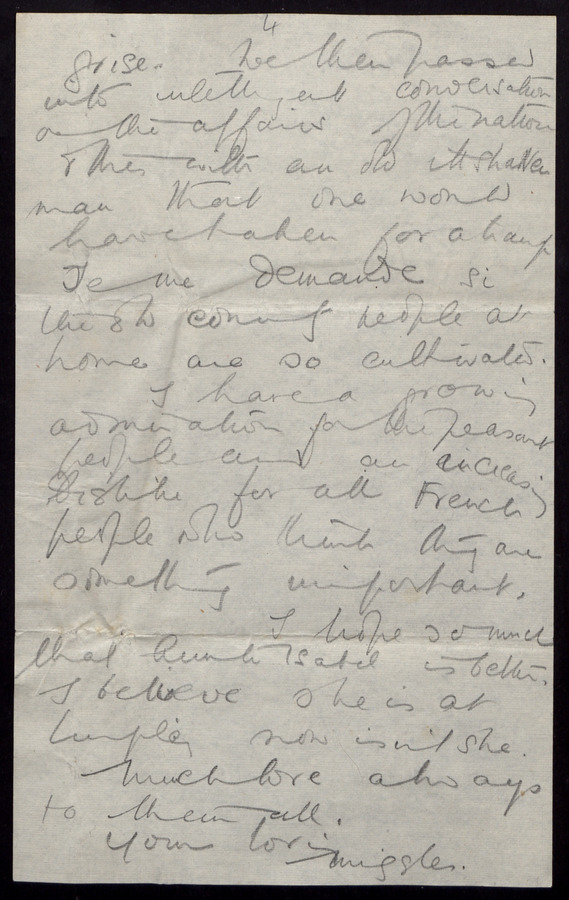 4
grise. We then passed
into intelligent conversation
on the affairs of the nation
& this with an old ill shaven
man that one would
have taken for a tramp
Je me demande si
the old country people at
home are so cultivated.
I have a growing
admiration for the peasant
people and an increasing
dislike for all French
people who think they are
something important.
I hope so much
that Aunt Isabel is better.
I believe she is at
now isn't she.
Much love always
to them all.
Your loving
Miggles.